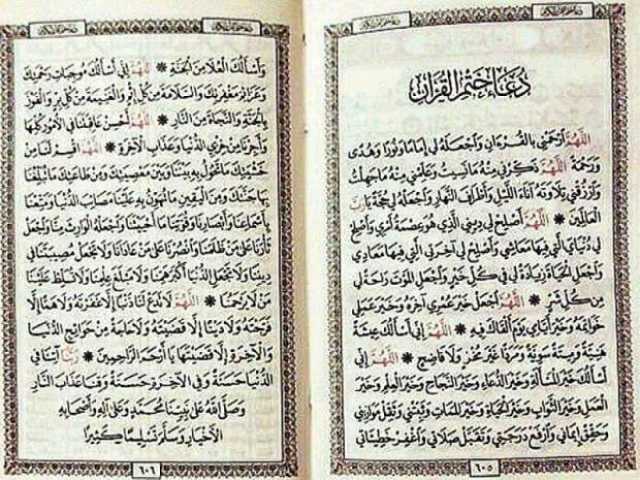 دعاء ختم القرآن
اللَّهُمَّ ارْحَمْنِي بِالْقُرْءَانِ وَاجْعَلْهُ لِي إِمَامًا وَنُورًا وَهُدًى
وَرَحْمَةً اللَّهُمَّ ذَكِّرْنِي مِنْهُ مَا نَسِيتُ وَعَلِّمْنِي مِنْهُ مَا جَهِلْتُ
وَارْزُقْنِي تِلَاوَتَهُ آنَاءَ اللَّيْلِ وَأَطْرَافَ النَّهَارِ وَاجْعَلْهُ لِي حُجَّةً يَا رَبَّ
الْعَالَمِينَ * اللَّهُمَّ أَصْلِحْ لِي دِينِي الَّذِي هُوَ عِصْمَةُ أَمْرِي وَأَصْلِحْ
لِي دُنْيَايَ الَّتِي فِيهَا مَعَاشِي وَأَصْلِحْ لِي آخِرَتِي الَّتِي فِيهَا مَعَادِي
وَاجْعَلِ الْحَيَاةَ زِيَادَةً لِي فِي كُلِّ خَيْرٍ وَاجْعَلِ الْمَوْتَ رَاحَةً لِي
مِنْ كُلِّ شَرٍّ * اللَّهُمَّ اجْعَلْ خَيْرَ عُمْرِي آخِرَهُ وَخَيْرَ عَمَلِي
خَوَاتِمَهُ وَخَيْرَ أَيَّامِي يَوْمَ أَلْقَاكَ فِيهِ * اللَّهُمَّ إِنِّي أَسْأَلُكَ عِيشَةً
هَنِيَّةً وَمِيتَةً سَوِيَّةً وَمَرَدًّا غَيْرَ مُخْزٍ وَلَا فَاضِحٍ * اللَّهُمَّ إِنِّي
أَسْأَلُكَ خَيْرَ الْمَسْأَلَةِ وَخَيْرَ الدُّعَاءِ وَخَيْرَ النَّجَاحِ وَخَيْرَ الْعِلْمِ وَخَيْرَ
الْعَمَلِ وَخَيْرَ الثَّوَابِ وَخَيْرَ الْحَيَاةِ وَخَيْرَ الْمَمَاتِ وَثَبِّتْنِي وَثَقِّلْ مَوَازِينِي
وَحَقِّقْ إِيمَانِي وَارْفَعْ دَرَجَتِي وَتَقَبَّلْ صَلَاتِي وَاغْفِرْ خَطِيئَاتِي
٦٠٥
وَأَسْأَلُكَ الْعُلَا مِنَ الْجَنَّةِ * اللَّهُمَّ إِنِّي أَسْأَلُكَ مُوجِبَاتِ رَحْمَتِكَ
وَعَزَائِمَ مَغْفِرَتِكَ وَالسَّلَامَةَ مِنْ كُلِّ إِثْمٍ وَالْغَنِيمَةَ مِنْ كُلِّ بِرٍّ وَالْفَوْزَ
بِالْجَنَّةِ وَالنَّجَاةَ مِنَ النَّارِ * اللَّهُمَّ أَحْسِنْ عَاقِبَتَنَا فِي الْأُمُورِ كُلِّهَا
وَأَجِرْنَا مِنْ خِزْيِ الدُّنْيَا وَعَذَابِ الْآخِرَةِ * اللَّهُمَّ اقْسِمْ لَنَا مِنْ
خَشْيَتِكَ مَا تَحُولُ بِهِ بَيْنَنَا وَبَيْنَ مَعْصِيَتِكَ وَمِنْ طَاعَتِكَ مَا تُبَلِّغُنَا
بِهَا جَنَّتَكَ وَمِنَ الْيَقِينِ مَا تُهَوِّنُ بِهِ عَلَيْنَا مَصَائِبَ الدُّنْيَا وَمَتِّعْنَا
بِأَسْمَاعِنَا وَأَبْصَارِنَا وَقُوَّتِنَا مَا أَحْيَيْتَنَا وَاجْعَلْهُ الْوَارِثَ مِنَّا وَاجْعَلْ
ثَأْرَنَا عَلَى مَنْ ظَلَمَنَا وَانْصُرْنَا عَلَى مَنْ عَادَانَا وَلَا تَجْعَلْ مُصِيبَتَنَا فِي
دِينِنَا وَلَا تَجْعَلِ الدُّنْيَا أَكْبَرَ هَمِّنَا وَلَا مَبْلَغَ عِلْمِنَا وَلَا تُسَلِّطْ عَلَيْنَا
مَنْ لَا يَرْحَمُنَا * اللَّهُمَّ لَا تَدَعْ لَنَا ذَنْبًا إِلَّا غَفَرْتَهُ وَلَا هَمًّا إِلَّا
فَرَّجْتَهُ وَلَا دَيْنًا إِلَّا قَضَيْتَهُ وَلَا حَاجَةً مِنْ حَوَائِجِ الدُّنْيَا
وَالْآخِرَةِ إِلَّا قَضَيْتَهَا يَا أَرْحَمَ الرَّاحِمِينَ * رَبَّنَا آتِنَا فِي
الدُّنْيَا حَسَنَةً وَفِي الْآخِرَةِ حَسَنَةً وَقِنَا عَذَابَ النَّارِ
وَصَلَّى اللَّهُ عَلَى نَبِيِّنَا مُحَمَّدٍ وَعَلَى آلِهِ وَأَصْحَابِهِ
الْأَخْيَارِ وَسَلَّمَ تَسْلِيمًا كَثِيرًا
٦٠٦